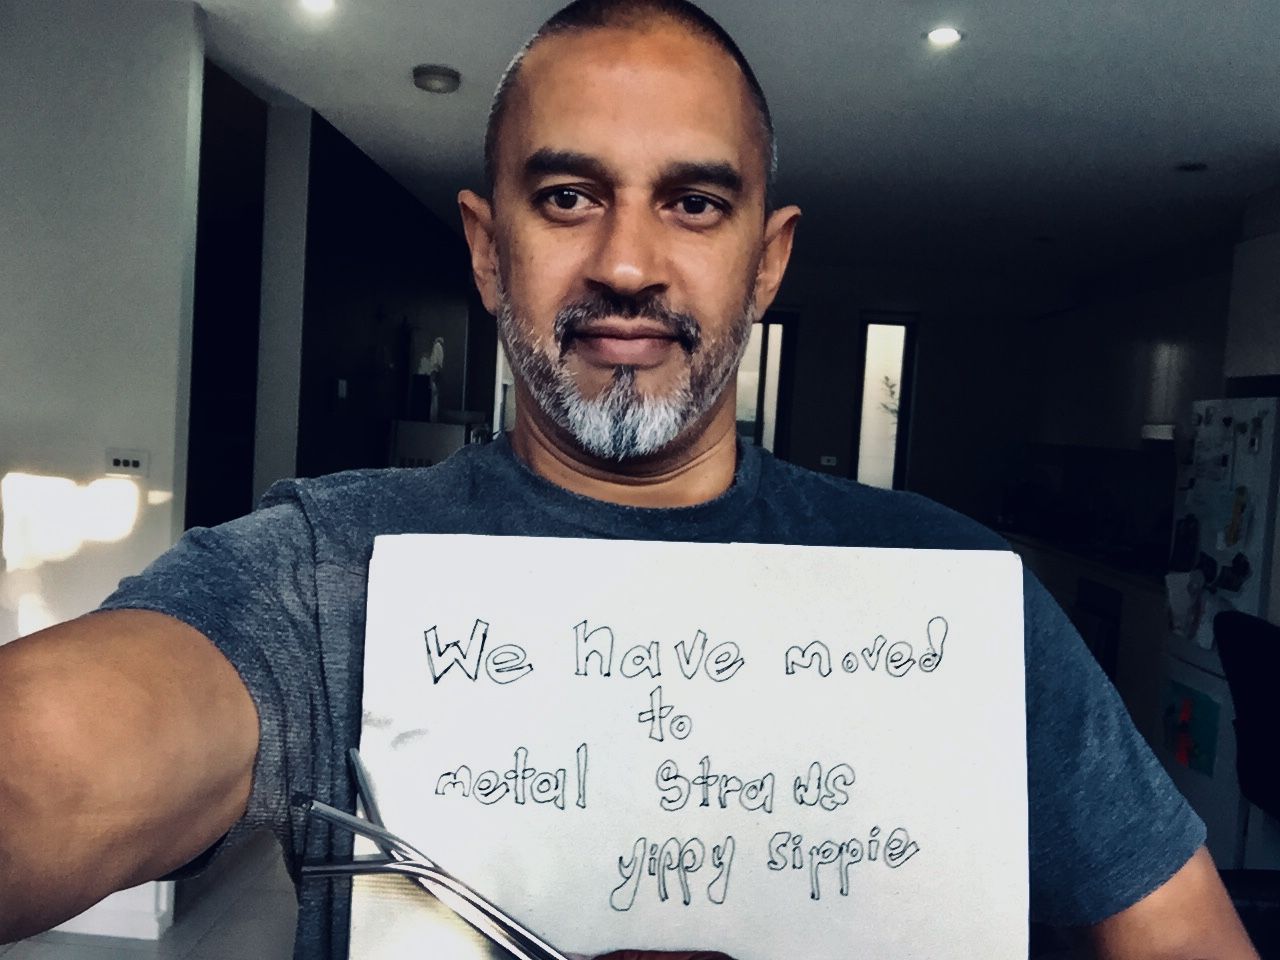 We have moved
to
metal straws
yippy sippie